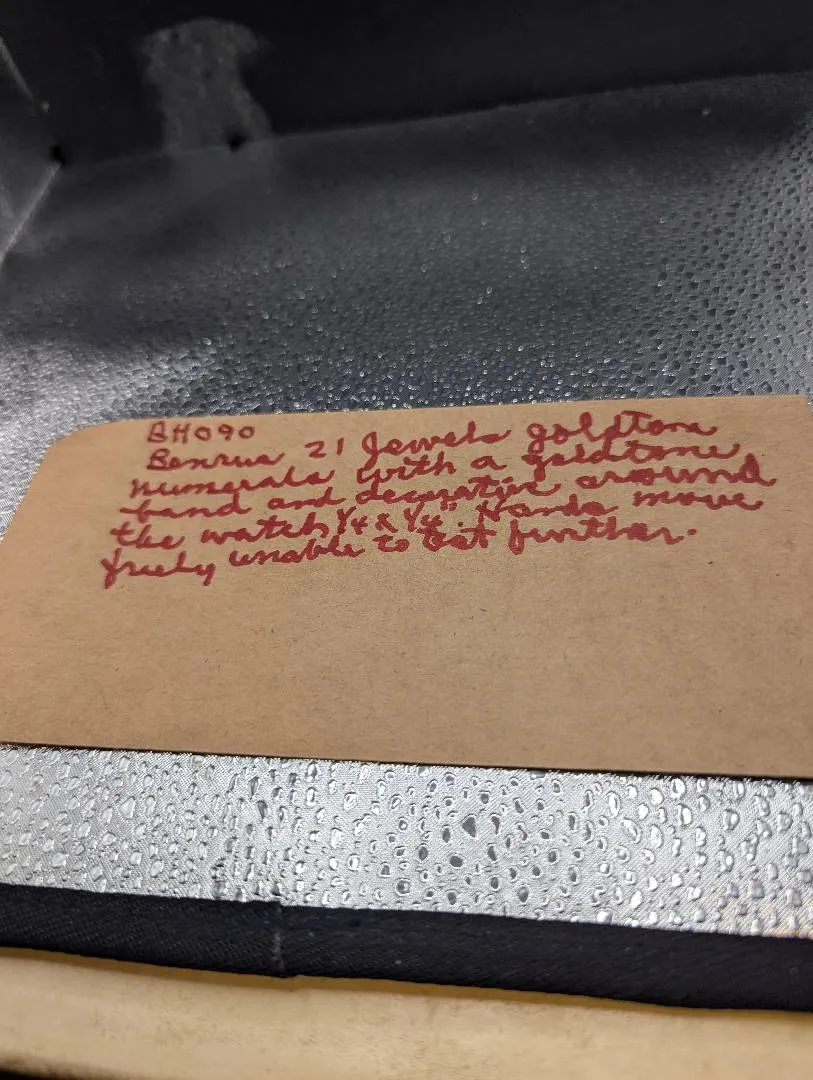 BH090
Benrus 21 Jewels goldtone
numerals with a goldtone
band and decorative around
the watch 1/4 x 1/4". Hands move
freely unable to test further.